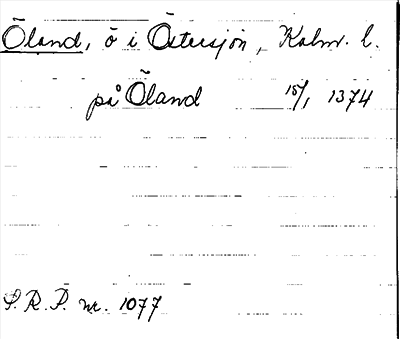 Öland, ö i Östersjön, Kalm. l.
på Öland 15/1 1374
S.R.P. nr. 1077